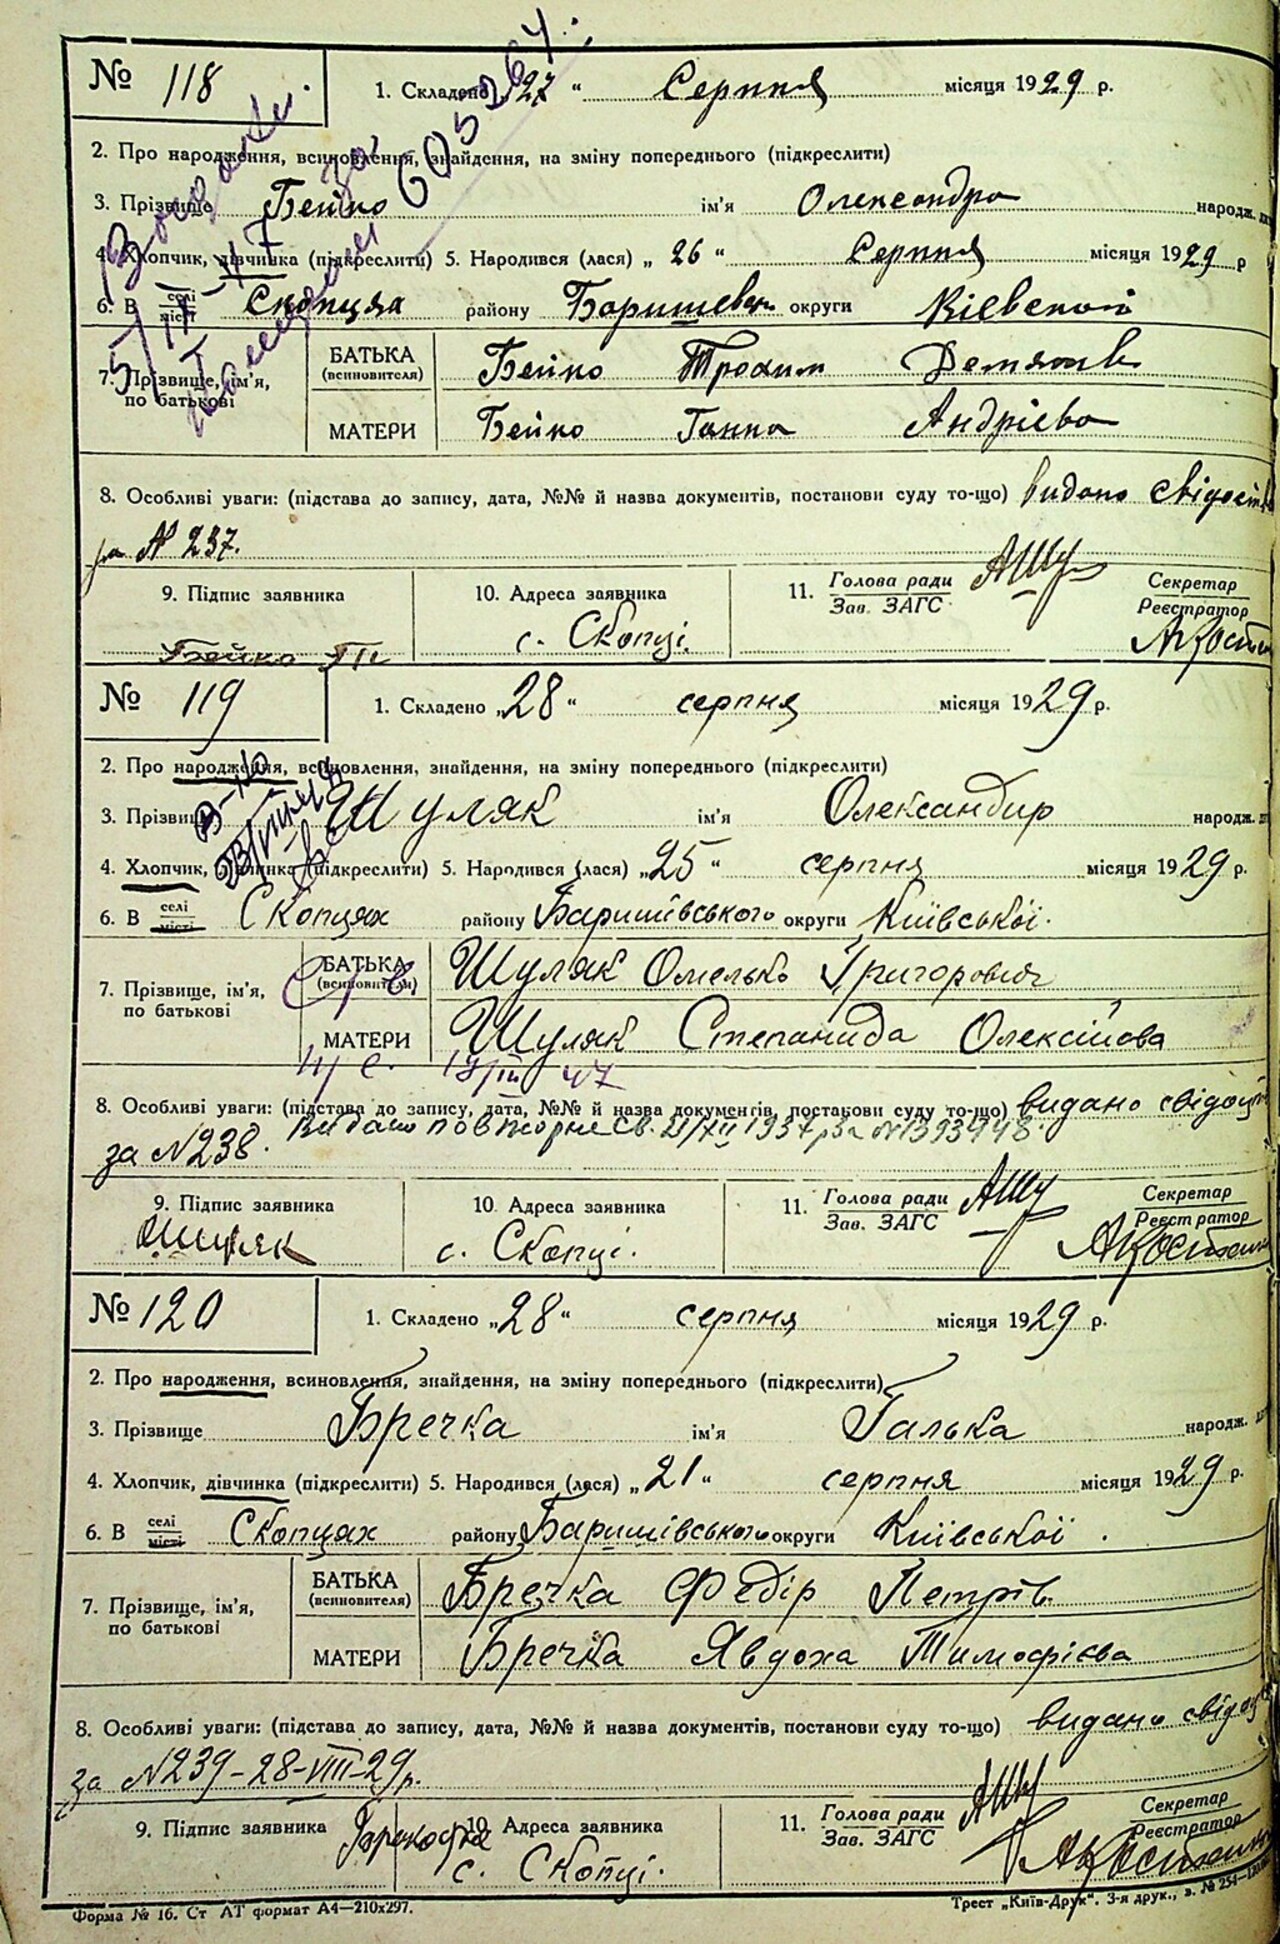 № 118
1. Складено „27“ Серпня місяця 1929 р.
2. Про народження, всиновлення, знайдення, на зміну попереднього (підкреслити)
3. Прізвище Бейко ім'я Олександра народж.
4. Хлопчик, дівчинка (підкреслити) 5. Народився (лася) „26“ Серпня місяця 1929 р
6. В селі місті Скопцях району Баришевск округи Київской
7. Прізвище, ім'я, по батькові
БАТЬКА (всиновителя) Бейко Трохим
МАТЕРИ Бейко Ганна Андрієва
8. Особливі уваги: (підстава до запису, дата, №№ й назва документів, постанови суду то-що) видано свідоцт
за № 237.
9. Підпис заявника 10. Адреса заявника 11. Голова ради Зав. ЗАГС Секретар Реєстратор
Бейко с. Скопці.
605264
№ 119
1. Складено „28“ серпня місяця 1929 р.
2. Про народження, всиновлення, знайдення, на зміну попереднього (підкреслити)
3. Прізвище Шуляк ім'я Олександир народж.
4. Хлопчик, дівчинка (підкреслити) 5. Народився (лася) „25“ серпня місяця 1929 р.
6. В селі місті Скопцях району Баришівського округи Київської.
7. Прізвище, ім'я, по батькові
БАТЬКА (всиновителя) Шуляк Омелько Григорович
МАТЕРИ Шуляк Степанида Олексійова
8. Особливі уваги: (підстава до запису, дата, №№ й назва документів, постанови суду то-що) видано свідоцт
за №238. Видано повторне св. 21/XII 1937р за №1393948.
9. Підпис заявника 10. Адреса заявника 11. Голова ради Зав. ЗАГС Секретар Реєстратор
Шуляк с. Скопці.
№ 120
1. Складено „28“ серпня місяця 1929 р.
2. Про народження, всиновлення, знайдення, на зміну попереднього (підкреслити)
3. Прізвище Бречка ім'я Галька народж.
4. Хлопчик, дівчинка (підкреслити) 5. Народився (лася) „21“ серпня місяця 1929 р.
6. В селі місті Скопцях району Баришівського округи Київської.
7. Прізвище, ім'я, по батькові
БАТЬКА (всиновителя) Бречка Федір Петрів.
МАТЕРИ Бречка Явдоха Тимофієва
8. Особливі уваги: (підстава до запису, дата, №№ й назва документів, постанови суду то-що) видано свідоц
за №239-28-VIII-29р.
9. Підпис заявника 10. Адреса заявника 11. Голова ради Зав. ЗАГС Секретар Реєстратор
с. Скопці.
Форма № 16. Ст АТ формат А4—210х297. Трест „Київ-Друк“. 3-я друк., з. № 254